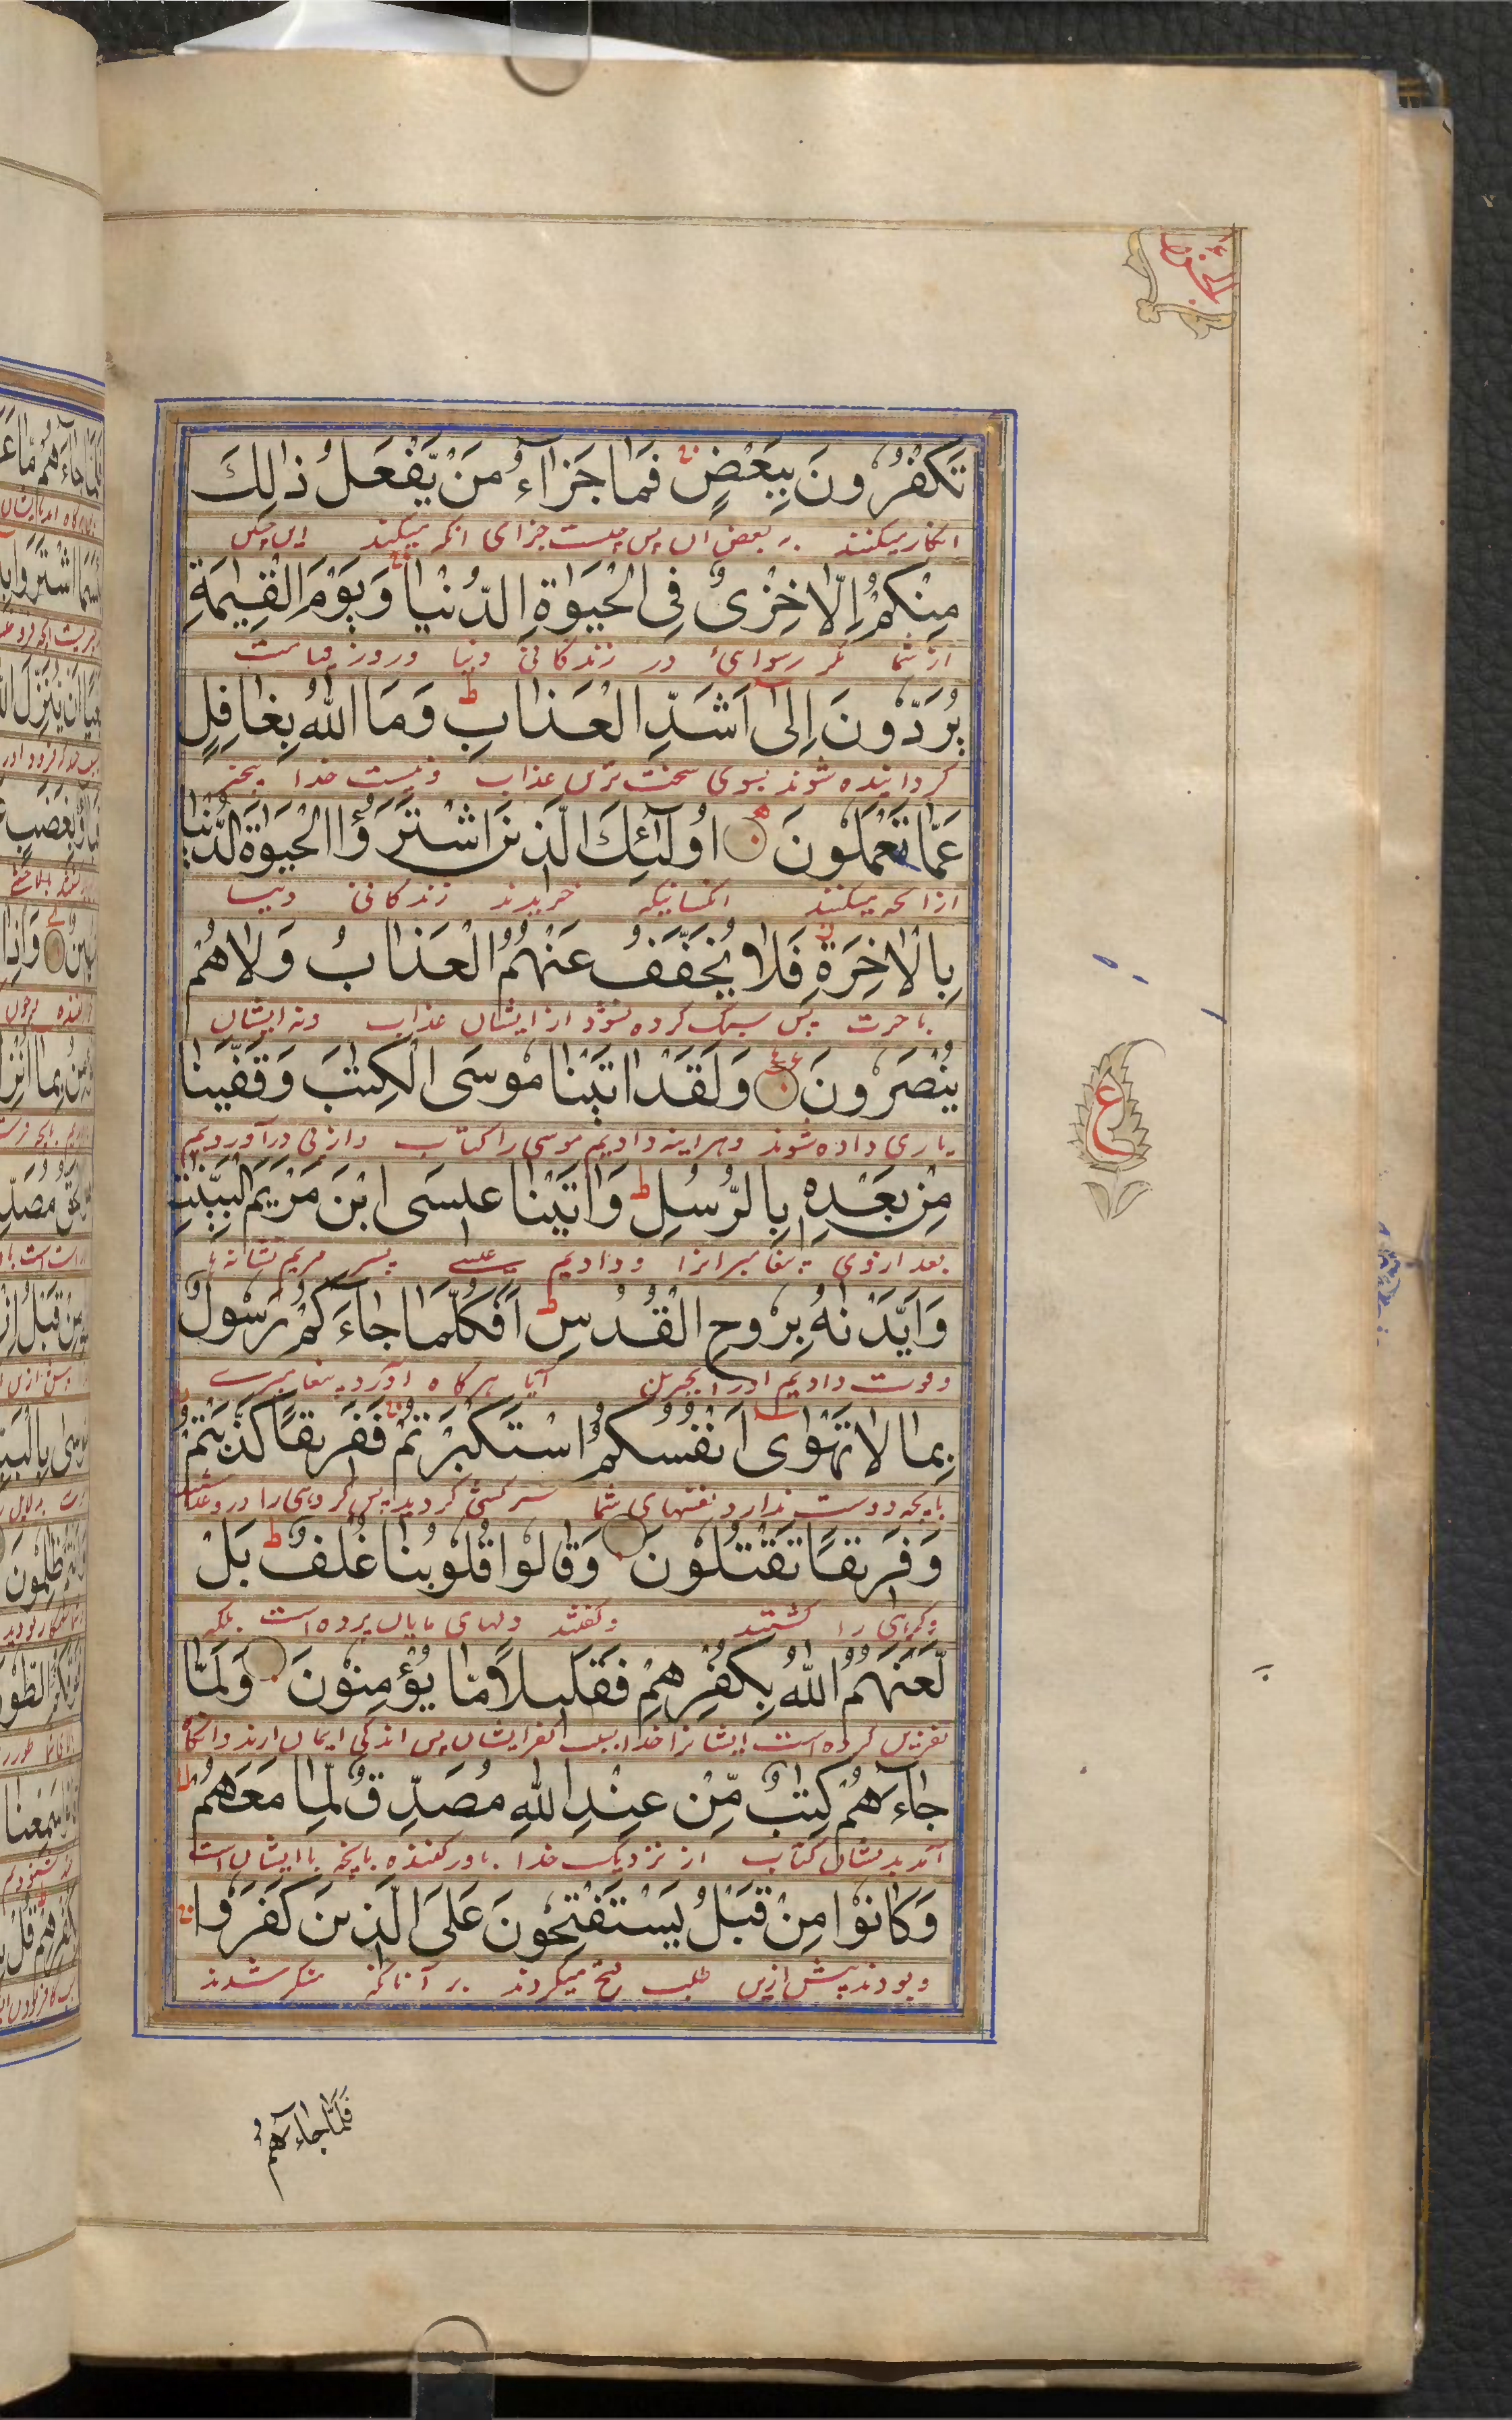 تَكْفُرُونَ بِبَعْضٍ فَمَا جَزَآءُ مَنْ يَّفْعَلُ ذٰلِكَ
انکار میکنند به بعض ان پس چیست جزای انکه میکند این چنین
مِنْكُمْ اِلَّا خِزْىٌ فِى الْحَيٰوةِ الدُّنْيَا وَيَوْمَ الْقِيٰمَةِ
از شما مکر رسوائی در زندکانی دنیا وروز قیامت
يُرَدُّوْنَ اِلٰٓى اَشَدِّ الْعَذَابِ ط وَمَا اللّٰهُ بِغَافِلٍ
کردانیده شوند بسوی سخت ترین عذاب و نیست خدا بیخبر
عَمَّا تَعْمَلُوْنَ اُولٰٓئِكَ الَّذِيْنَ اشْتَرَوُا الْحَيٰوةَ الدُّنْيَا
ازانچه میکنند انکسانیکه خریدند زندکانی دنیا
بِالْاٰخِرَةِ فَلَا يُخَفَّفُ عَنْهُمُ الْعَذَابُ وَلَا هُمْ
باخرت پس سبک کرده نشود از ایشان عذاب ونه ایشان
يُنْصَرُوْنَ وَلَقَدْ اٰتَيْنَا مُوْسَى الْكِتٰبَ وَقَفَّيْنَا
یاری داده شوند وهراینه دادیم موسی را کتاب وازپی دراوردیم
مِنْۢ بَعْدِهٖ بِالرُّسُلِ ط وَاٰتَيْنَا عِيْسَى ابْنَ مَرْيَمَ الْبَيِّنٰتِ
بعد ازوی پیغامبرانرا ودادیم عیسے پسر مریم نشانه‌ها
وَاَيَّدْنٰهُ بِرُوْحِ الْقُدُسِ ط اَفَكُلَّمَا جَآءَكُمْ رَسُوْلٌ
وقوت دادیم اورا بجبریل آیا هرکاه اورد پیغامبرے
بِمَا لَا تَهْوٰىٓ اَنْفُسُكُمُ اسْتَكْبَرْتُمْ فَفَرِيْقًا كَذَّبْتُمْ
بانچه دوست ندارد نفسهای شما سرکشی کردید پس کروهی را دروغ
وَفَرِيْقًا تَقْتُلُوْنَ وَقَالُوْا قُلُوْبُنَا غُلْفٌ ط بَلْ
وکروهی را کشتند وکفتند دلهای مایان پرده است بلکه
لَّعَنَهُمُ اللّٰهُ بِكُفْرِهِمْ فَقَلِيْلًا مَّا يُؤْمِنُوْنَ وَلَمَّا
نفرین کرده است ایشانرا خدا بسبب کفر ایشان پس اندکی ایمان ارند وانکاه
جَآءَهُمْ كِتٰبٌ مِّنْ عِنْدِ اللّٰهِ مُصَدِّقٌ لِّمَا مَعَهُمْ
آمد بدیشان کتاب از نزدیک خدا باورکننده بانچه با ایشان است
وَكَانُوْا مِنْ قَبْلُ يَسْتَفْتِحُوْنَ عَلَى الَّذِيْنَ كَفَرُوْا
وبودند پیش ازین طلب فتح میکردند بر آنانکه منکر شدند
ع
فَلَمَّا جَآءَهُمْ